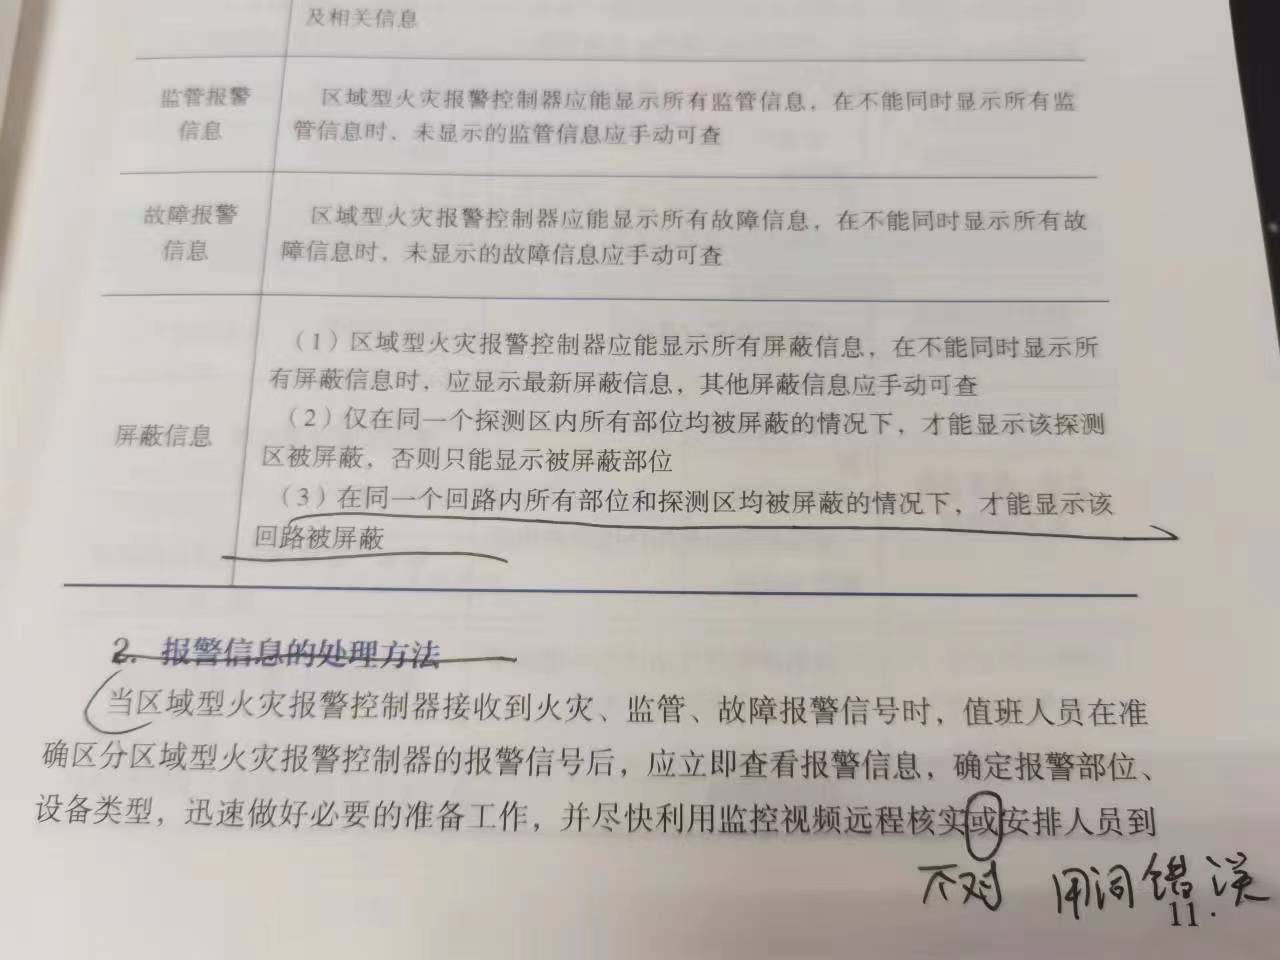 及相关信息
监管报警
信息
区域型火灾报警控制器应能显示所有监管信息，在不能同时显示所有监
管信息时，未显示的监管信息应手动可查
故障报警
信息
区域型火灾报警控制器应能显示所有故障信息，在不能同时显示所有故
障信息时，未显示的故障信息应手动可查
屏蔽信息
（1）区域型火灾报警控制器应能显示所有屏蔽信息，在不能同时显示所
有屏蔽信息时，应显示最新屏蔽信息，其他屏蔽信息应手动可查
（2）仅在同一个探测区内所有部位均被屏蔽的情况下，才能显示该探测
区被屏蔽，否则只能显示被屏蔽部位
（3）在同一个回路内所有部位和探测区均被屏蔽的情况下，才能显示该
回路被屏蔽
2. 报警信息的处理方法
当区域型火灾报警控制器接收到火灾、监管、故障报警信号时，值班人员在准
确区分区域型火灾报警控制器的报警信号后，应立即查看报警信息，确定报警部位、
设备类型，迅速做好必要的准备工作，并尽快利用监控视频远程核实或安排人员到
不对 用词错误
11.